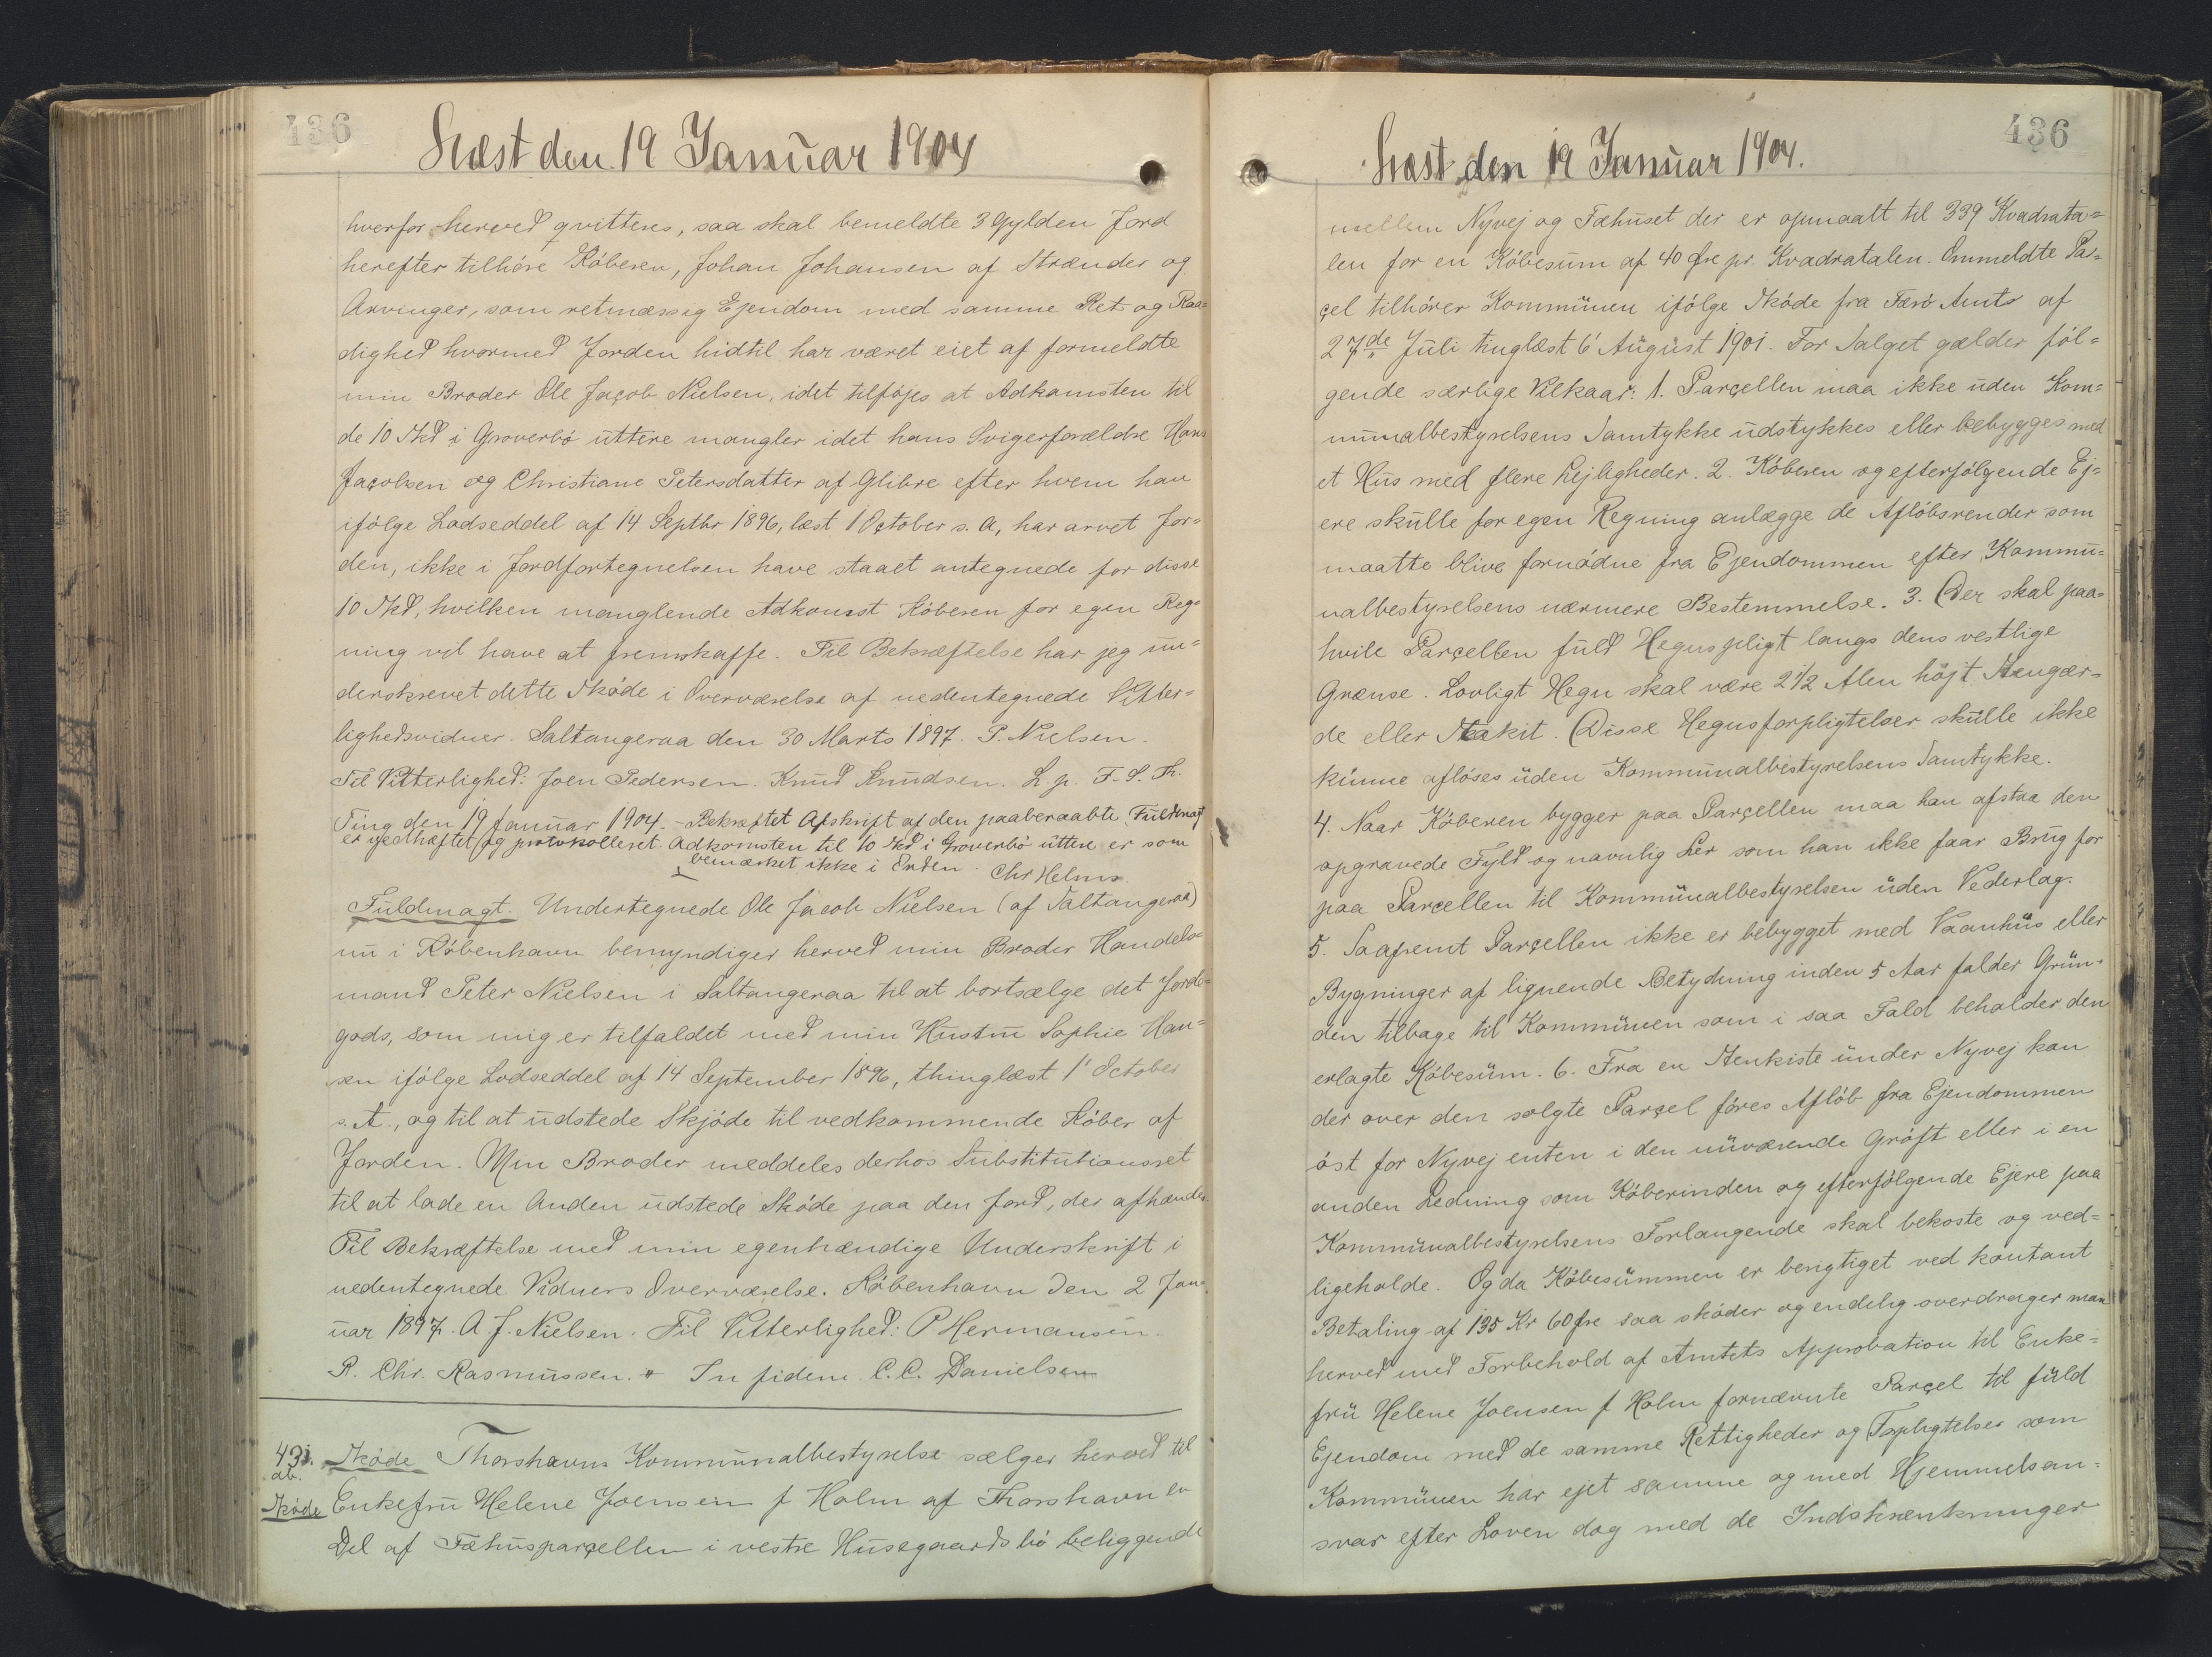 436
Læst den 19 Januar 1904
hverfor herved qvitteres, saa skal bemeldte 3 Gylden Jord
herefter tilhøre Køberen, Johan Johansen af Strænder og
Arvinger, som retmæssig Ejendom med samme Ret og Raa=
dighed hvormed Jorden hidtil har været eiet af formeldte
min Broder Ole Jacob Nielsen, idet tilføjes at Adkomsten til
de 10 Skd i Groverbø uttere mangler idet hans Svigerforældre Hans
Jacobsen og Christiane Petersdatter af Glibre efter hvem han
ifølge Lodseddel af 14 Septbr 1896, læst 1 October s. A, har arvet Jor=
den, ikke i Jordfortegnelsen have staaet antegnede for disse
10 Skd, hvilken manglende Adkomst Køberen for egen Reg=
ning vil have at fremskaffe. Til Bekræftelse har jeg un=
derskrevet dette Skøde i Overværelse af nedentegnede Vitter=
lighedsvidner. Saltangeraa den 30 Marts 1897. P. Nielsen.
Til Vitterlighed: Joen Pedersen. Knud Knudsen. L. p. F. S. Th.
Ting den 19 Januar 1904. - Bekræftet Afskrift af den paaberaabte Fuldmagt
er vedhæftet og protokolleret. Adkomsten til 10 Skd i Groverbø uttere er som
bemærket ikke i Orden. Chr Helms.
Fuldmagt. Undertegnede Ole Jacob Nielsen (af Saltangeraa)
nu i København bemyndiger herved min Broder Handels=
mand Peter Nielsen i Saltangeraa til at bortsælge det Jorde=
gods, som mig er tilfaldet med min Hustru Sophie Han=
sen ifølge Lodseddel af 14 September 1896, thinglæst 1' October
s. A., og til at udstede Skjøde til vedkommende Køber af
Jorden. Min Broder meddeles derhos Substitutionsret
til at lade en Anden udstede Skøde paa den Jord, der afhændes.
Til Bekræftelse med min egenhændige Underskrift i
nedentegnede Vidners Overværelse. København den 2 Jan=
uar 1897. A J. Nielsen. Til Vitterlighed: P Hermansen.
R. Chr. Rasmussen. In fidem C. C. Danielsen
431. Skøde Thorshavns Kommunalbestyrelse sælger herved til
ab.
Skøde Enkefru Helene Joensen f Holm af Thorshavn en
Del af Fæhusparcellen i vestre Husegaards bø beliggende
436
Læst den 19 Januar 1904.
mellem Nyvej og Fæhuset der er opmaalt til 339 Kvadrata=
len for en Købesum af 40 Øre pr. Kvadratalen. Ommeldte Par=
cel tilhører Kommunen ifølge Skøde fra Færø Amts af
27de Juli tinglæst 6' August 1901. For Salget gælder føl=
gende særlige Vilkaar: 1. Parcellen maa ikke uden Kom=
munalbestyrelsens Samtykke udstykkes eller bebygges med
et Hus med flere Lejligheder. 2. Køberen og efterfølgende Ej=
ere skulle for egen Regning anlægge de Afløbsrender som
maatte blive fornødne fra Ejendommen efter Kommu=
nalbestyrelsens nærmere Bestemmelse. 3. Der skal paa=
hvile Parcellen fuld Hegnspligt langs dens vestlige
Grænse. Lovligt Hegn skal være 2 1/2 Alen højt Stengær=
de eller Stakit. Disse Hegnsforpligtelser skulle ikke
kunne afløses uden Kommunalbestyrelsens Samtykke.
4. Naar Køberen bygger paa Parcellen maa han afstaa den
opgravede Fyld og navnlig Ler som han ikke faar Brug for
paa Parcellen til Kommunalbestyrelsen uden Vederlag.
5. Saafremt Parcellen ikke er bebygget med Vaanhus eller
Bygninger af lignende Betydning inden 5 Aar falder Grun=
den tilbage til Kommunen som i saa Fald beholder den
erlagte Købesum. 6. Fra en Stenkiste under Nyvej kan
der over den solgte Parcel føres Afløb fra Ejendommen
øst for Nyvej enten i den nuværende Grøft eller i en
anden Ledning som Køberinden og efterfølgende Ejere paa
Kommunalbestyrelsens Forlangende skal bekoste og ved=
ligeholde. Og da Købesummen er berigtiget ved kontant
Betaling af 135 Kr 60 Øre saa skøder og endelig overdrager man
herved med Forbehold af Amtets Approbation til Enke=
fru Helene Joensen f Holm fornævnte Parcel til fuld
Ejendom med de samme Rettigheder og Forpligtelser som
Kommunen har ejet samme og med Hjemmelsan=
svar efter Loven dog med de Indskrænkninger